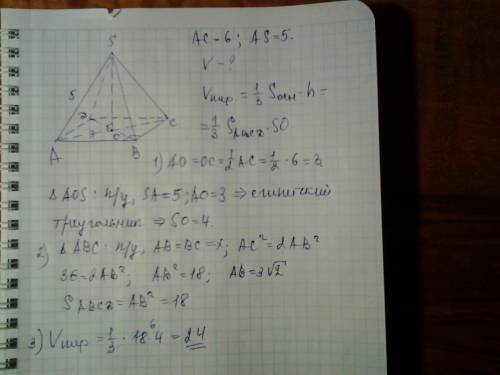 AC - 6 ; AS = 5.
V - ?
Vпир = 1/3 Sосн · h =
= 1/3 SABCD · SO
S
5
D
C
3
O
A
B
1) AO = OC = 1/2 AC = 1/2 · 6 = 3
△ AOS : п/у, SA = 5 ; AO = 3 ⇒ египетский
треугольник ⇒ SO = 4.
2) △ ABC - п/у, AB = BC = x ; AC² = 2AB²
36 = 2AB² ; AB² = 18 ; AB = 3√2
SABCD = AB² = 18
3) Vпир = 1/3 · 18 6 · 4 = 24